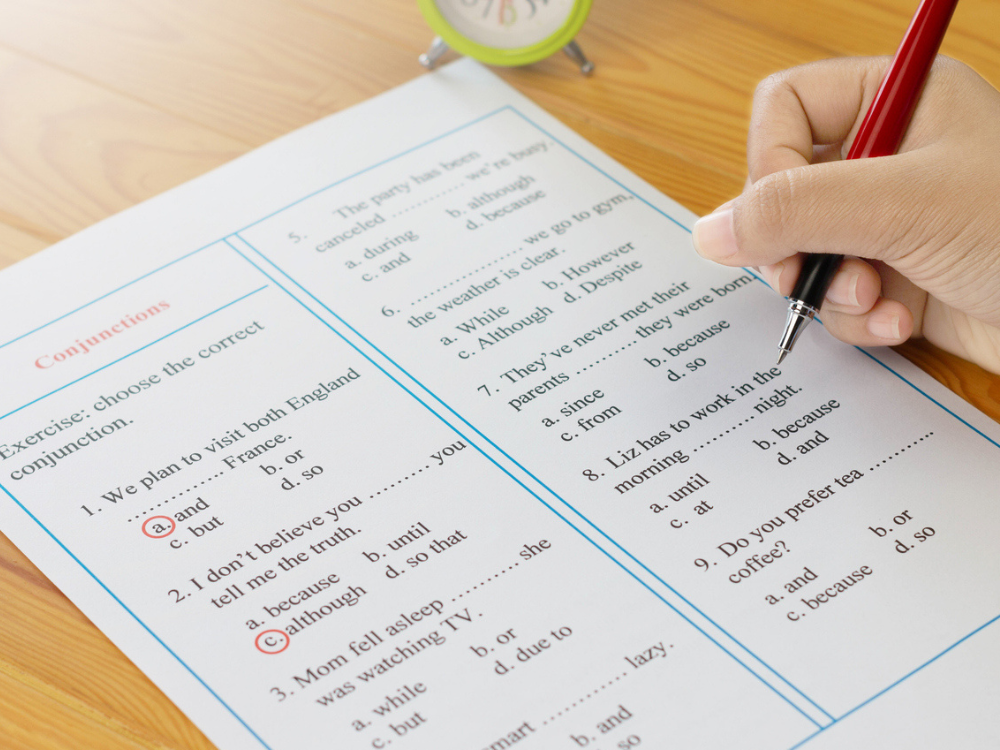 Conjunctions
Exercise: choose the correct
conjunction.
1. We plan to visit both England
.............. France.
a. and b. or
c. but d. so
2. I don't believe you .......... you
tell me the truth.
a. because b. until
c. although d. so that
3. Mom fell asleep .......... she
was watching TV.
a. while b. or
c. but d. due to
mart ............. lazy.
b. and
so
5. The party has been
canceled ........... we're busy.
a. during b. although
c. and d. because
6. ................. we go to gym,
the weather is clear.
a. While b. However
c. Although d. Despite
7. They've never met their
parents ............. they were born.
a. since b. because
c. from d. so
8. Liz has to work in the
morning ............. night.
a. until b. because
c. at d. and
9. Do you prefer tea ..........
coffee?
a. and b. or
c. because d. so